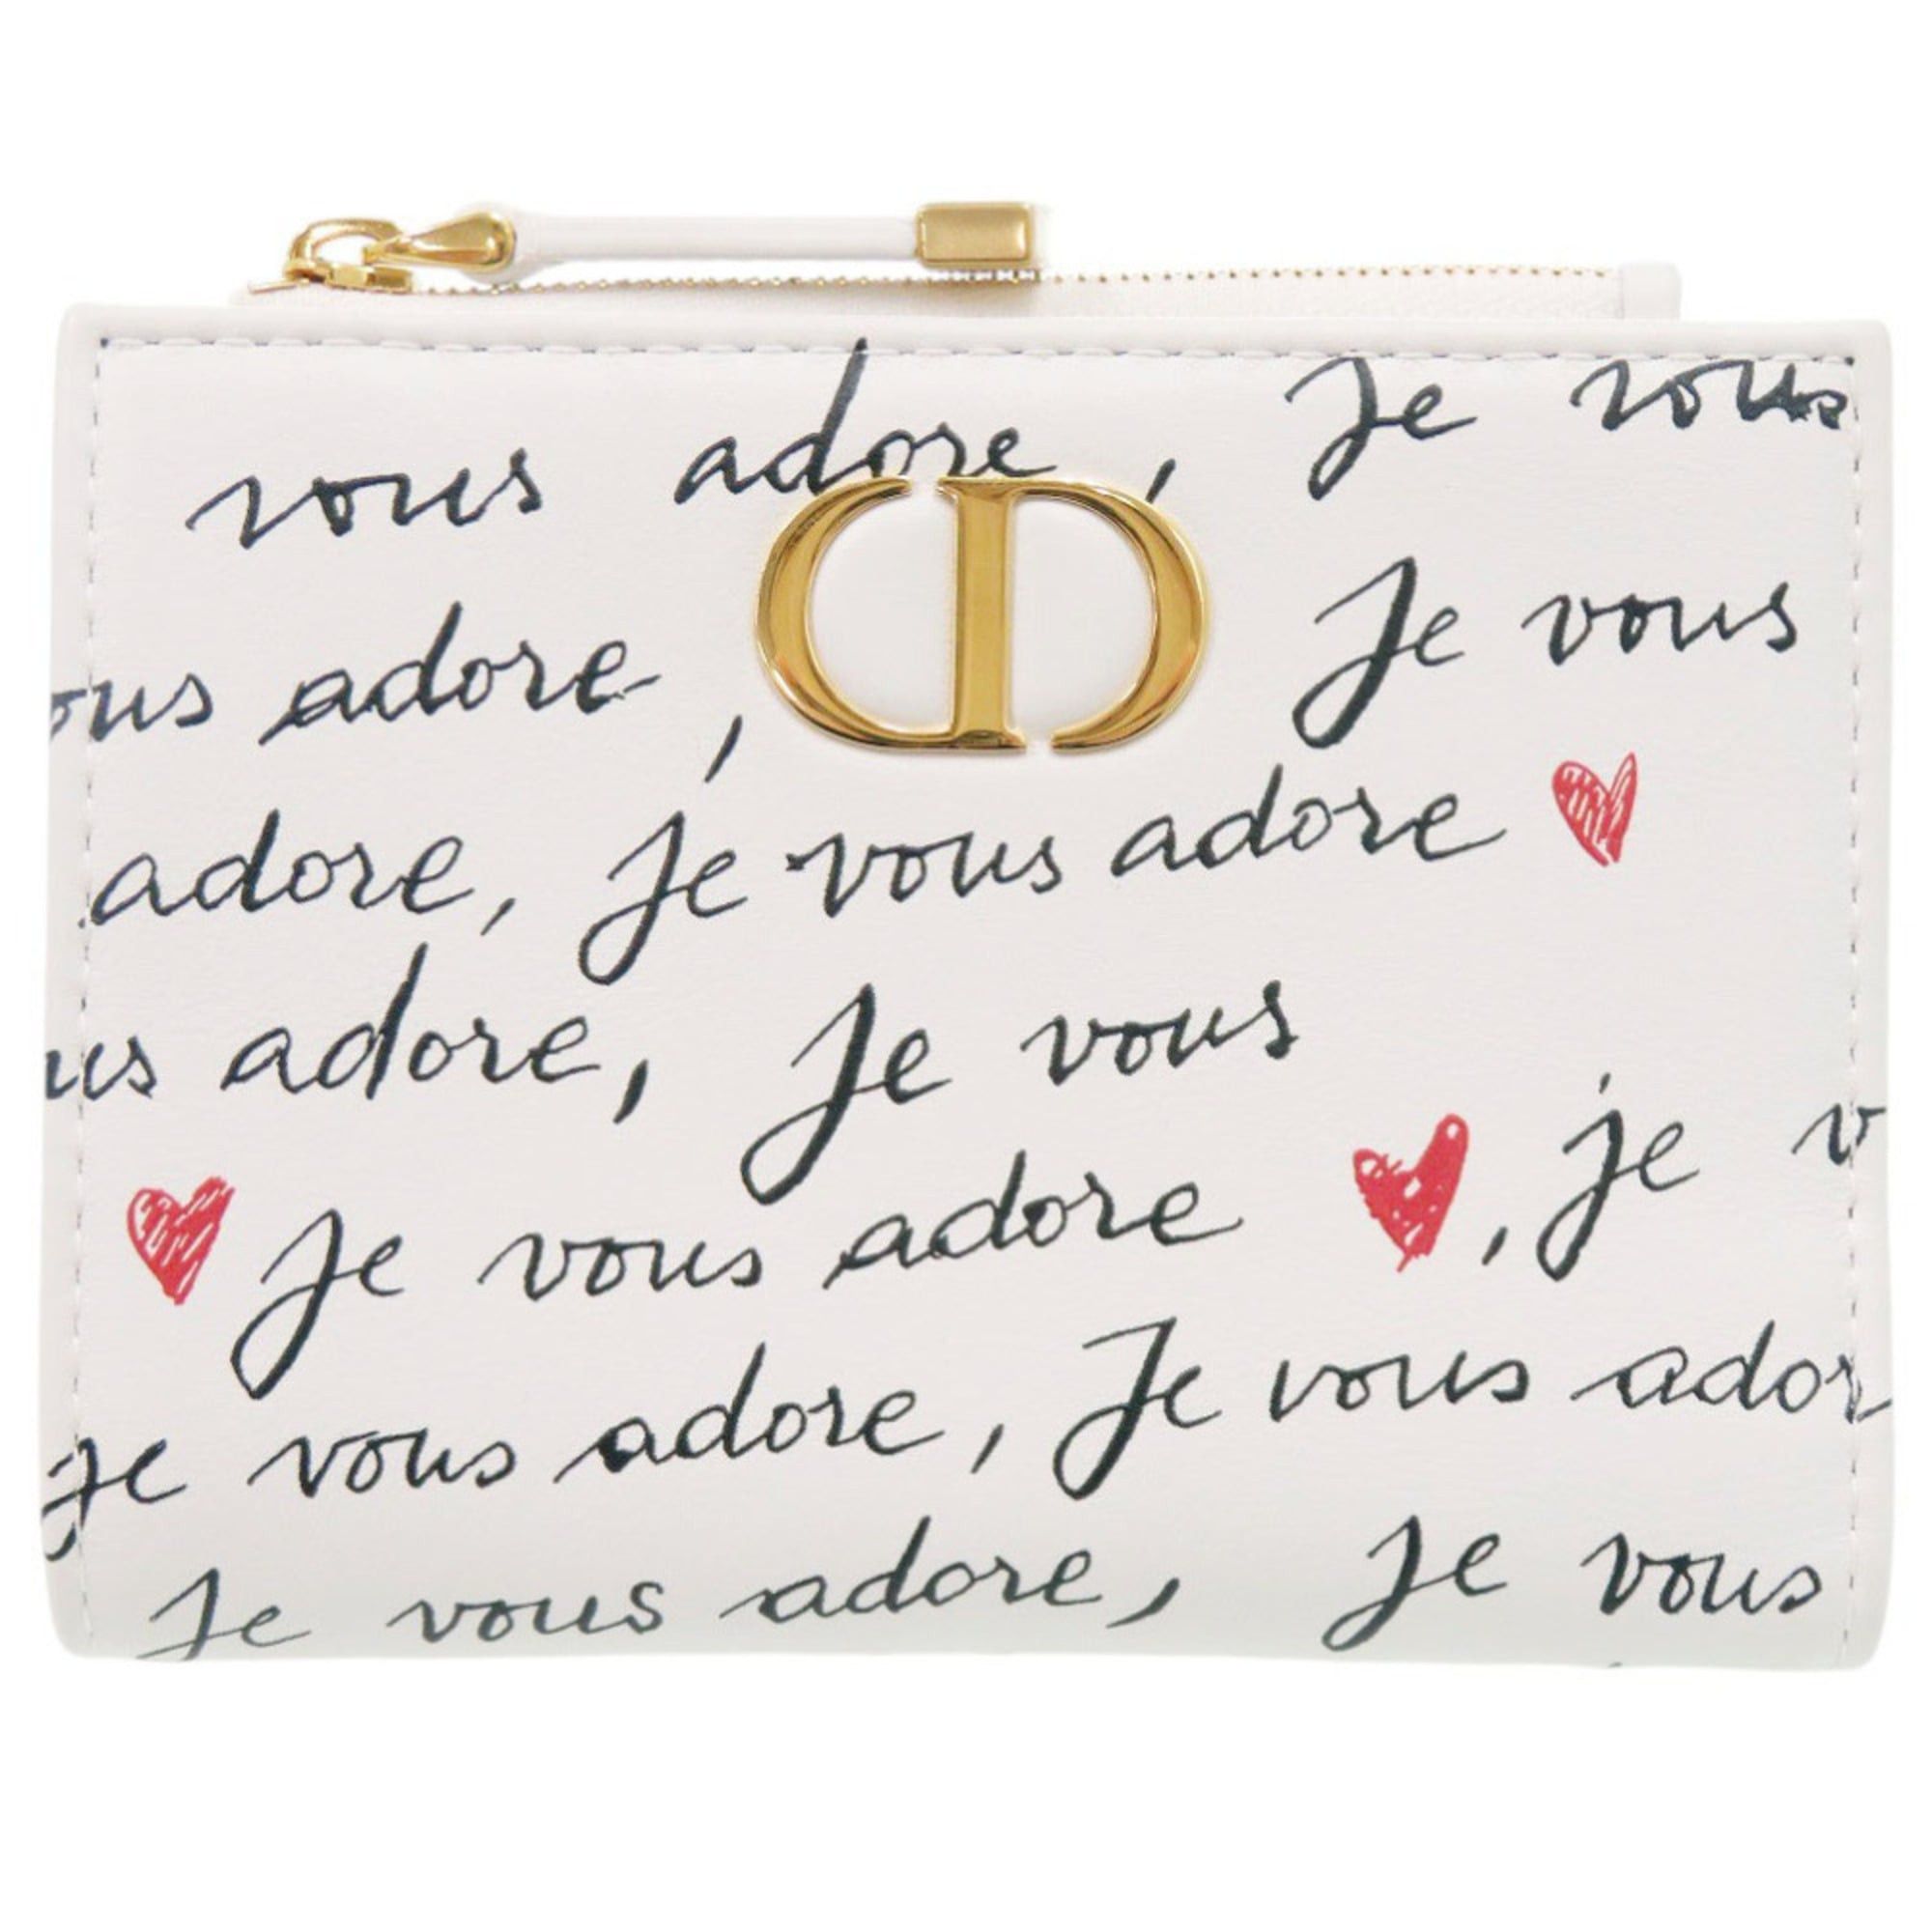 vous adore, Je vous
CD
ous adore, Je vous
adore, Je vous adore
us adore, Je vous
Je vous adore , je v
Je vous adore, Je vous ador
Je vous adore, Je vous